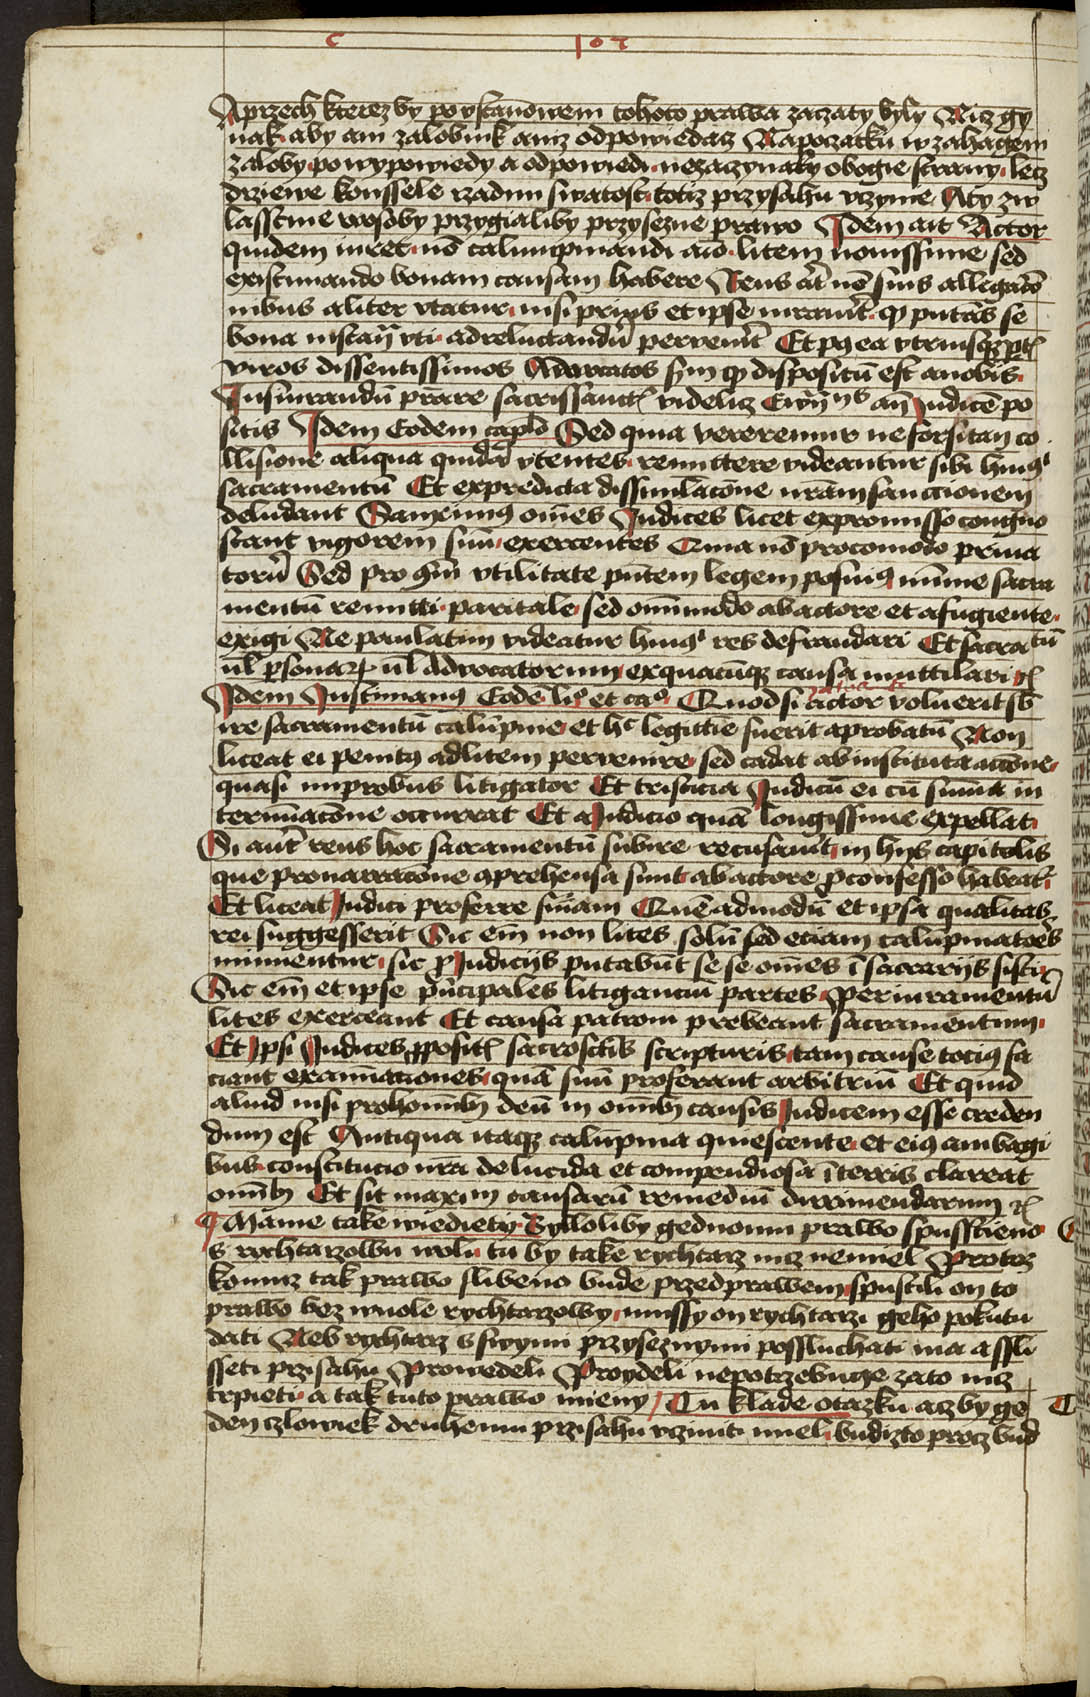 C 107
Aprzech kterez by po vstanowem tohoto prawa zaczaty byly Nicz gy
nak aby ani zalobnik aniz odpowiedacz Napoczatku w zahagem
zaloby powypowiedy a odpowiedi nezaczynaly obogie strany lecz
drziewe konssele rzadim swatost totiz przysahu vczyme Aby zw
lasstnie w osoby przygialiby przysezne prawo Idem ait Actor
quidem iuret nō calumpniandi aīo litem mouissime sed
existimando bonam causam habere Reus āt nō suis allegatō
nibus aliter vtatur nisi prius et ipse iurauīt qp putās se
bona instan̄ vti ad reluctandū pervenīt Et pꝯ ea vtriusqꝫ ptꝭ
viros dissentissimos Advocatos sm̄ qp dispositū est anobis
Iusiurandū prēare sacrissanctꝭ videlicꝫ Ewn̄ijs an̄ Iudicē po
sitis Idem Eodem caplō Sed quia vereremur ne forsitan co
llisione aliqua quidā vtentes remittere videantur sibi huiꝰ
sacramentū Et ex predicta dissimlacōne nrām sanccionem
deludant Sanximꝰ om̄es Iudices licet ex promisso congno
scant vigorem suū exercentes Quia nō pro comodo priua
torū Sed pro cōm̄ vtilitate pn̄tem legem posuimꝰ mīme sacra
mentū remitti paritale sed om̄imodo ab actore et a fugiente
exigi Ne paulatim videatur huiꝰ res defraudari Et sacra tū
ul̄ p̱sonaꝝ ul̄ Advocatorum ex quacūqꝫ causa muttilari ⁊cꝭ
Idem Iustinianꝰ Eodē liº et caº Quod si actor voluerit sb̄
ire sacramentū calūpnie et hͨ legittīe fuerit aprobatū Non
liceat ei penitꝰ ad litem pervenire sed cadat ab instituta accōne
quasi improbus litigator Et tristicia Iudicū ei cū sum̄a in
termīacōne occurrat Et a Iudicio quā longissime expellat
Si autē reus hoc sacramentū subire recusauīt in hijs capitolis
que pro narracōne ꝯprehensa sunt ab actore ꝓ confesso habeatᷣ
Et liceat Iudici proferre sn̄iam Quē admodū et ipsa qualitas
rei suggesserit Sic em̄ non lites solū sed etiam calūpniatoēs
minuentur sic ꝓ Iudicijs putabūt se se om̄es ī sacrarijs sisti
Sic em̄ et ipse p̄ncipales litigancium partes ꝑ iuramentū
lites exerceant Et causa patroni prebeant sacramentum
Et Ipsi Iudices ꝓpositꝭ sacrosctīs scripturis tam cause tociꝰ fa
ciant examīaciones quā suū proferant arbitriū Et quid
aliud nisi pro hom̄ibꝫ deū in omībꝫ causis Iudicem esse creden
dum est Antiqua itaqꝫ calūpnia quiescente et eiꝰ ambagi
bus constitucio nrā delucida et compendiosa ī terris clareat
omībꝫ Et sit maxim causarū remediū dirrimendarum ⁊cꝭ
¶ Mame take wiediety Bylloliby gednomu prawo spusstieno
s rychtarzowu wolu tu by take rychtarz nicz nemiel Protoz
komuz tak prawo slibeno bude przed prawem spustili on to
prawo bez wuole rychtarzowy mussy on rychtarzi geho pokutu
dati Neb rychtarz s swymi przyseznymi possluchati ma a ssli
sseti przisahu Prowedeli Proydeli nepotrzebuge zato nicz
trpieti a tak tuto prawo mieny / Tu klade otazku acz by ge
den czlowiek druhemu przisahu vczinit miel budizto procz bud